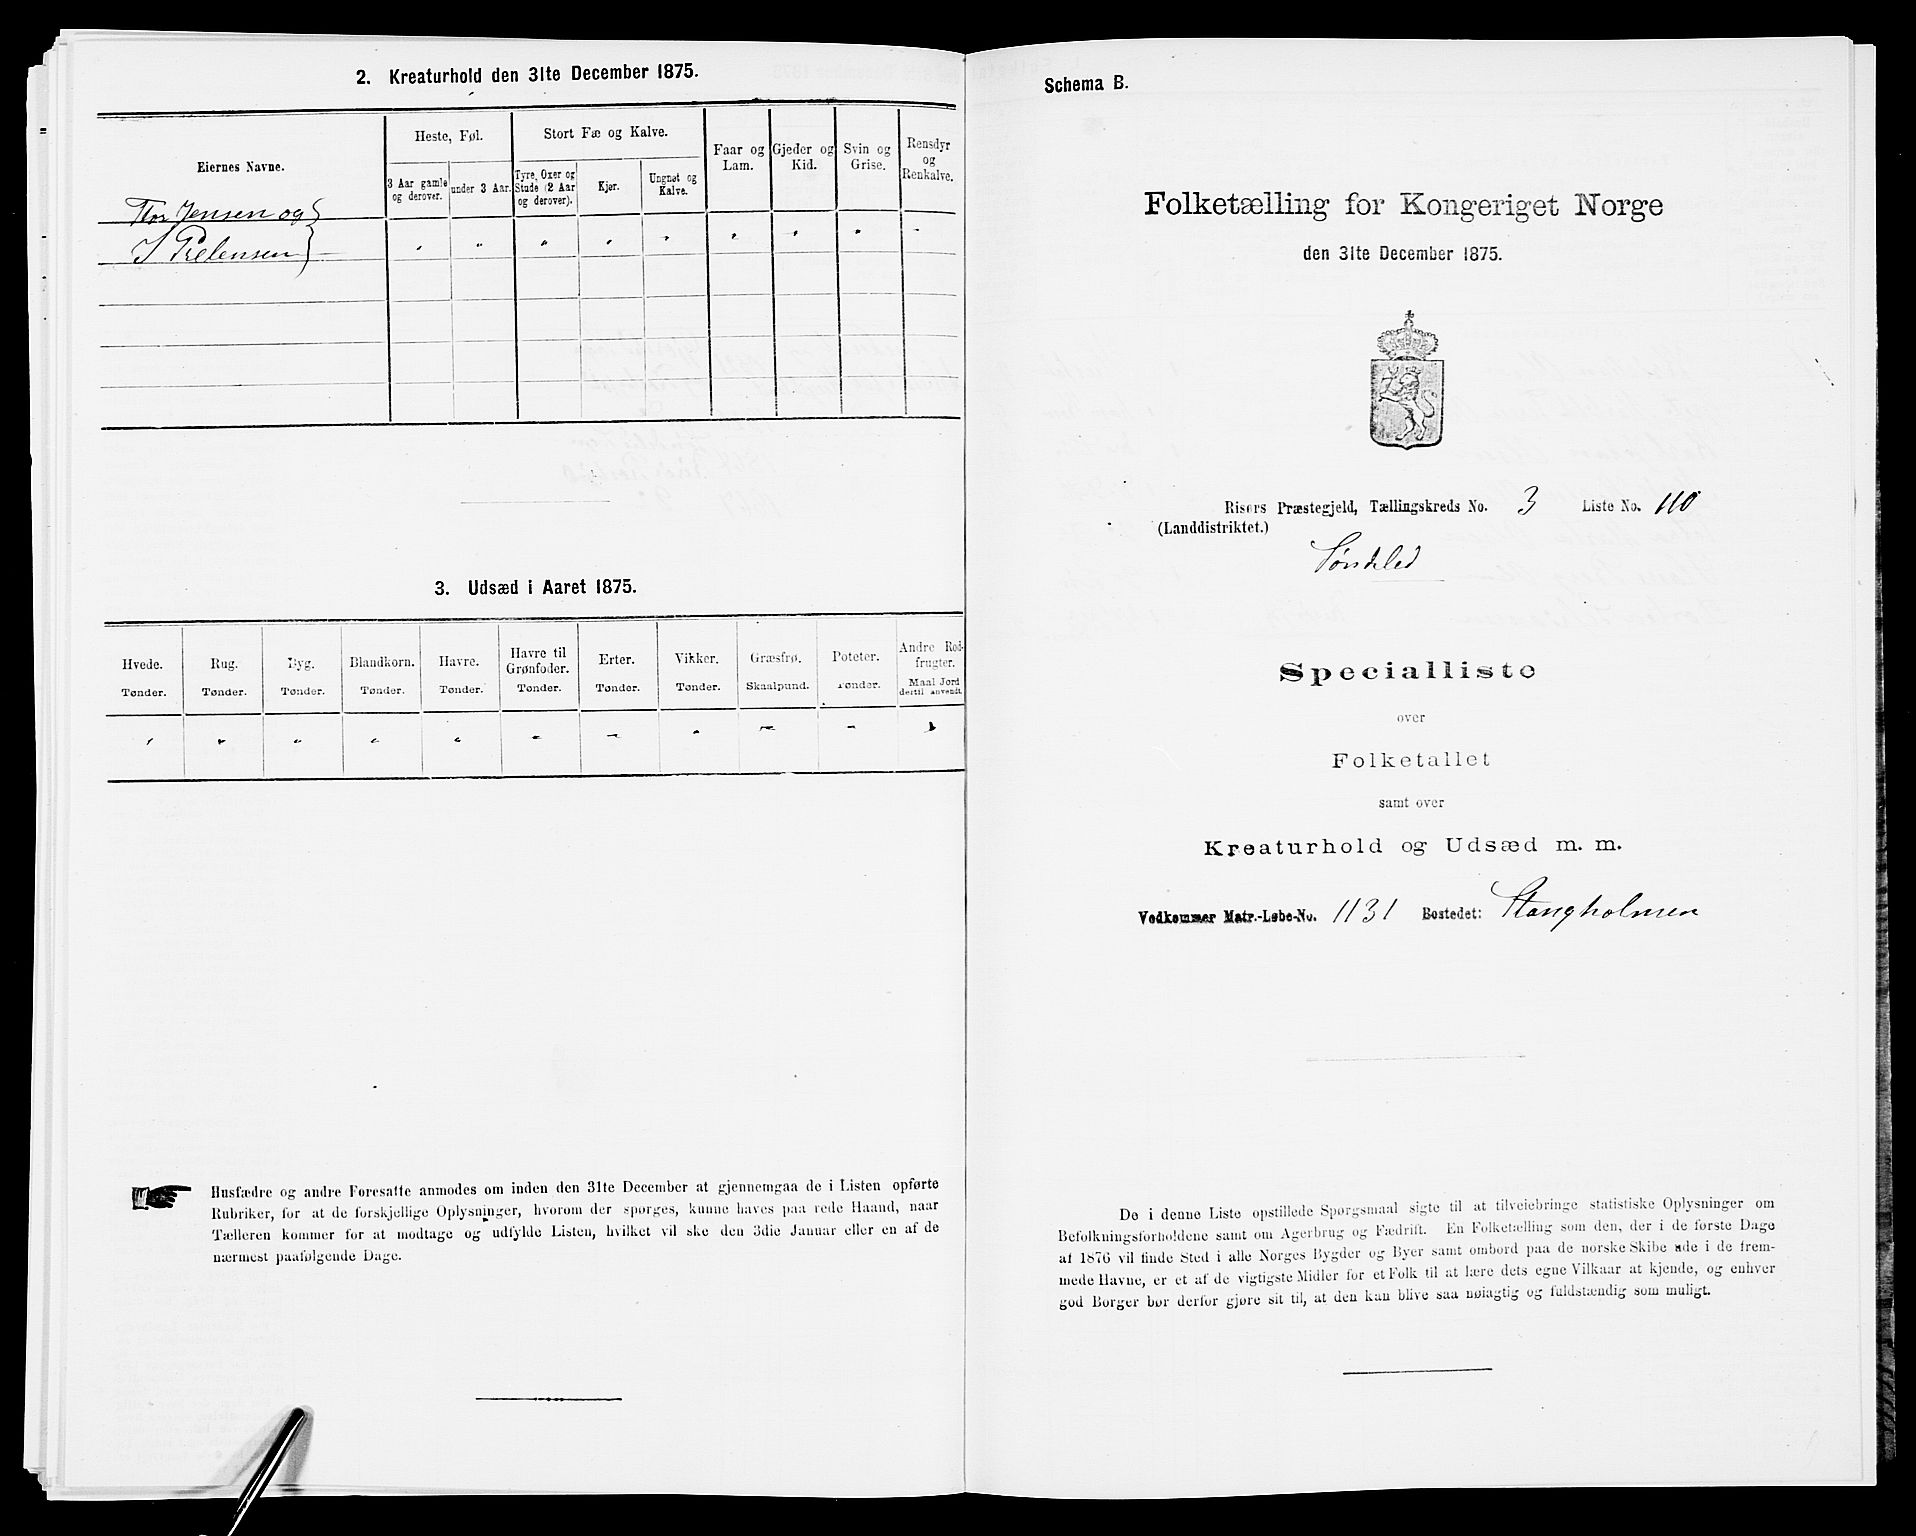 2. Kreaturhold den 31te December 1875.
Eiernes Navne.
Heste, Føl.
Stort Fæ og Kalve.
Faar og
Lam.
Gjeder og
Kid.
Svin og
Grise.
Rensdyr
og
Renkalve.
3 Aar gamle
og derover.
under 3 Aar.
Tyre, Oxer og
Stude (2 Aar
og derover).
Kjør.
Ungnøt og
Kalve.
Jensen og
3. Udsæd i Aaret 1875.
Hvede. Rug. Byg. Blandkorn. Havre. Havre til Grønfoder. Erter. Vikker. Græsfrø. Poteter. Andre Rodfrugter.
Tønder. Tønder. Tønder. Tønder. Tønder. Tønder. Tønder. Tønder. Skaalpund. Tønder. Maal Jord dertil anvendt.
Husfædre og andre Foresatte anmodes om inden den 31te December at gjennemgaa de i Listen opførte
Rubriker, for at de forskjellige Oplysninger, hvorom der spørges, kunne haves paa rede Haand, naar
Tælleren kommer for at modtage og udfylde Listen, hvilket vil ske den 3die Januar eller en af de
nærmest paafølgende Dage.
Schema B.
Folketælling for Kongeriget Norge
den 31te December 1875.
Risørs Præstegjeld, Tællingskreds No. 3 Liste No. 110
(Landdistriktet.)
Søndeled
Specialliste
over
Folketallet
samt over
Kreaturhold og Udsæd m. m.
Vedkommer Matr.-Løbe-No. 1131 Bostedet: Stangholmen
De i denne Liste opstillede Spørgsmaal sigte til at tilveiebringe statistiske Oplysninger om
Befolkningsforholdene samt om Agerbrug og Fædrift. En Folketælling som den, der i de første Dage
af 1876 vil finde Sted i alle Norges Bygder og Byer samt ombord paa de norske Skibe ude i de frem-
mede Havne, er et af de vigtigste Midler for et Folk til at lære dets egne Vilkaar at kjende, og enhver
god Borger bør derfor gjøre sit til, at den kan blive saa nøiagtig og fuldstændig som muligt.